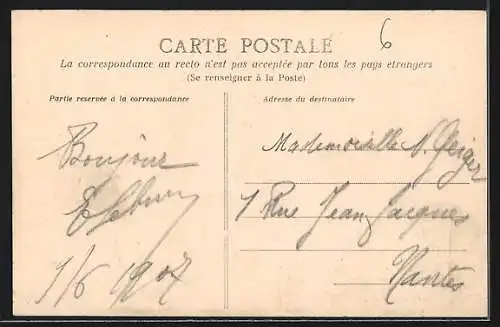 6
CARTE POSTALE
La correspondance au recto n'est pas acceptée par tous les pays étrangers
(Se renseigner à la Poste)
Partie reservée à la correspondance
Bonjour
1/6 1907
Adresse du destinataire
Mademoiselle N. Geiger
1 Rue Jean Jacques
Nantes